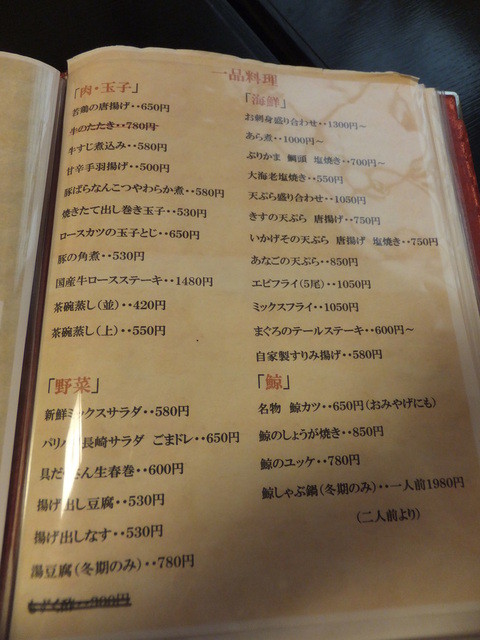 一品料理
「肉・玉子」
若鶏の唐揚げ・・650円
牛のたたき・・780円
牛すじ煮込み・・580円
甘辛手羽揚げ・・500円
豚ばらなんこつやわらか煮・・580円
焼きたて出し巻き玉子・・530円
ロースカツの玉子とじ・・650円
豚の角煮・・530円
国産牛ロースステーキ・・1480円
茶碗蒸し(並)・・420円
茶碗蒸し(上)・・550円
「野菜」
新鮮ミックスサラダ・・580円
パリパリ長崎サラダ ごまドレ・・650円
具だくさん生春巻・・600円
揚げ出し豆腐・・530円
揚げ出しなす・・530円
湯豆腐(冬期のみ)・・780円
もずく酢・・300円
「海鮮」
お刺身盛り合わせ・・1300円~
あら煮・・1000円~
ぶりかま 鯛頭 塩焼き・・700円~
大海老塩焼き・・550円
天ぷら盛り合わせ・・1050円
きすの天ぷら 唐揚げ・・750円
いかげその天ぷら 唐揚げ 塩焼き・・750円
あなごの天ぷら・・850円
エビフライ(5尾)・・1050円
ミックスフライ・・1050円
まぐろのテールステーキ・・600円~
自家製すりみ揚げ・・580円
「鯨」
名物 鯨カツ・・650円(おみやげにも)
鯨のしょうが焼き・・850円
鯨のユッケ・・780円
鯨しゃぶ鍋(冬期のみ)・・一人前1980円
(二人前より)